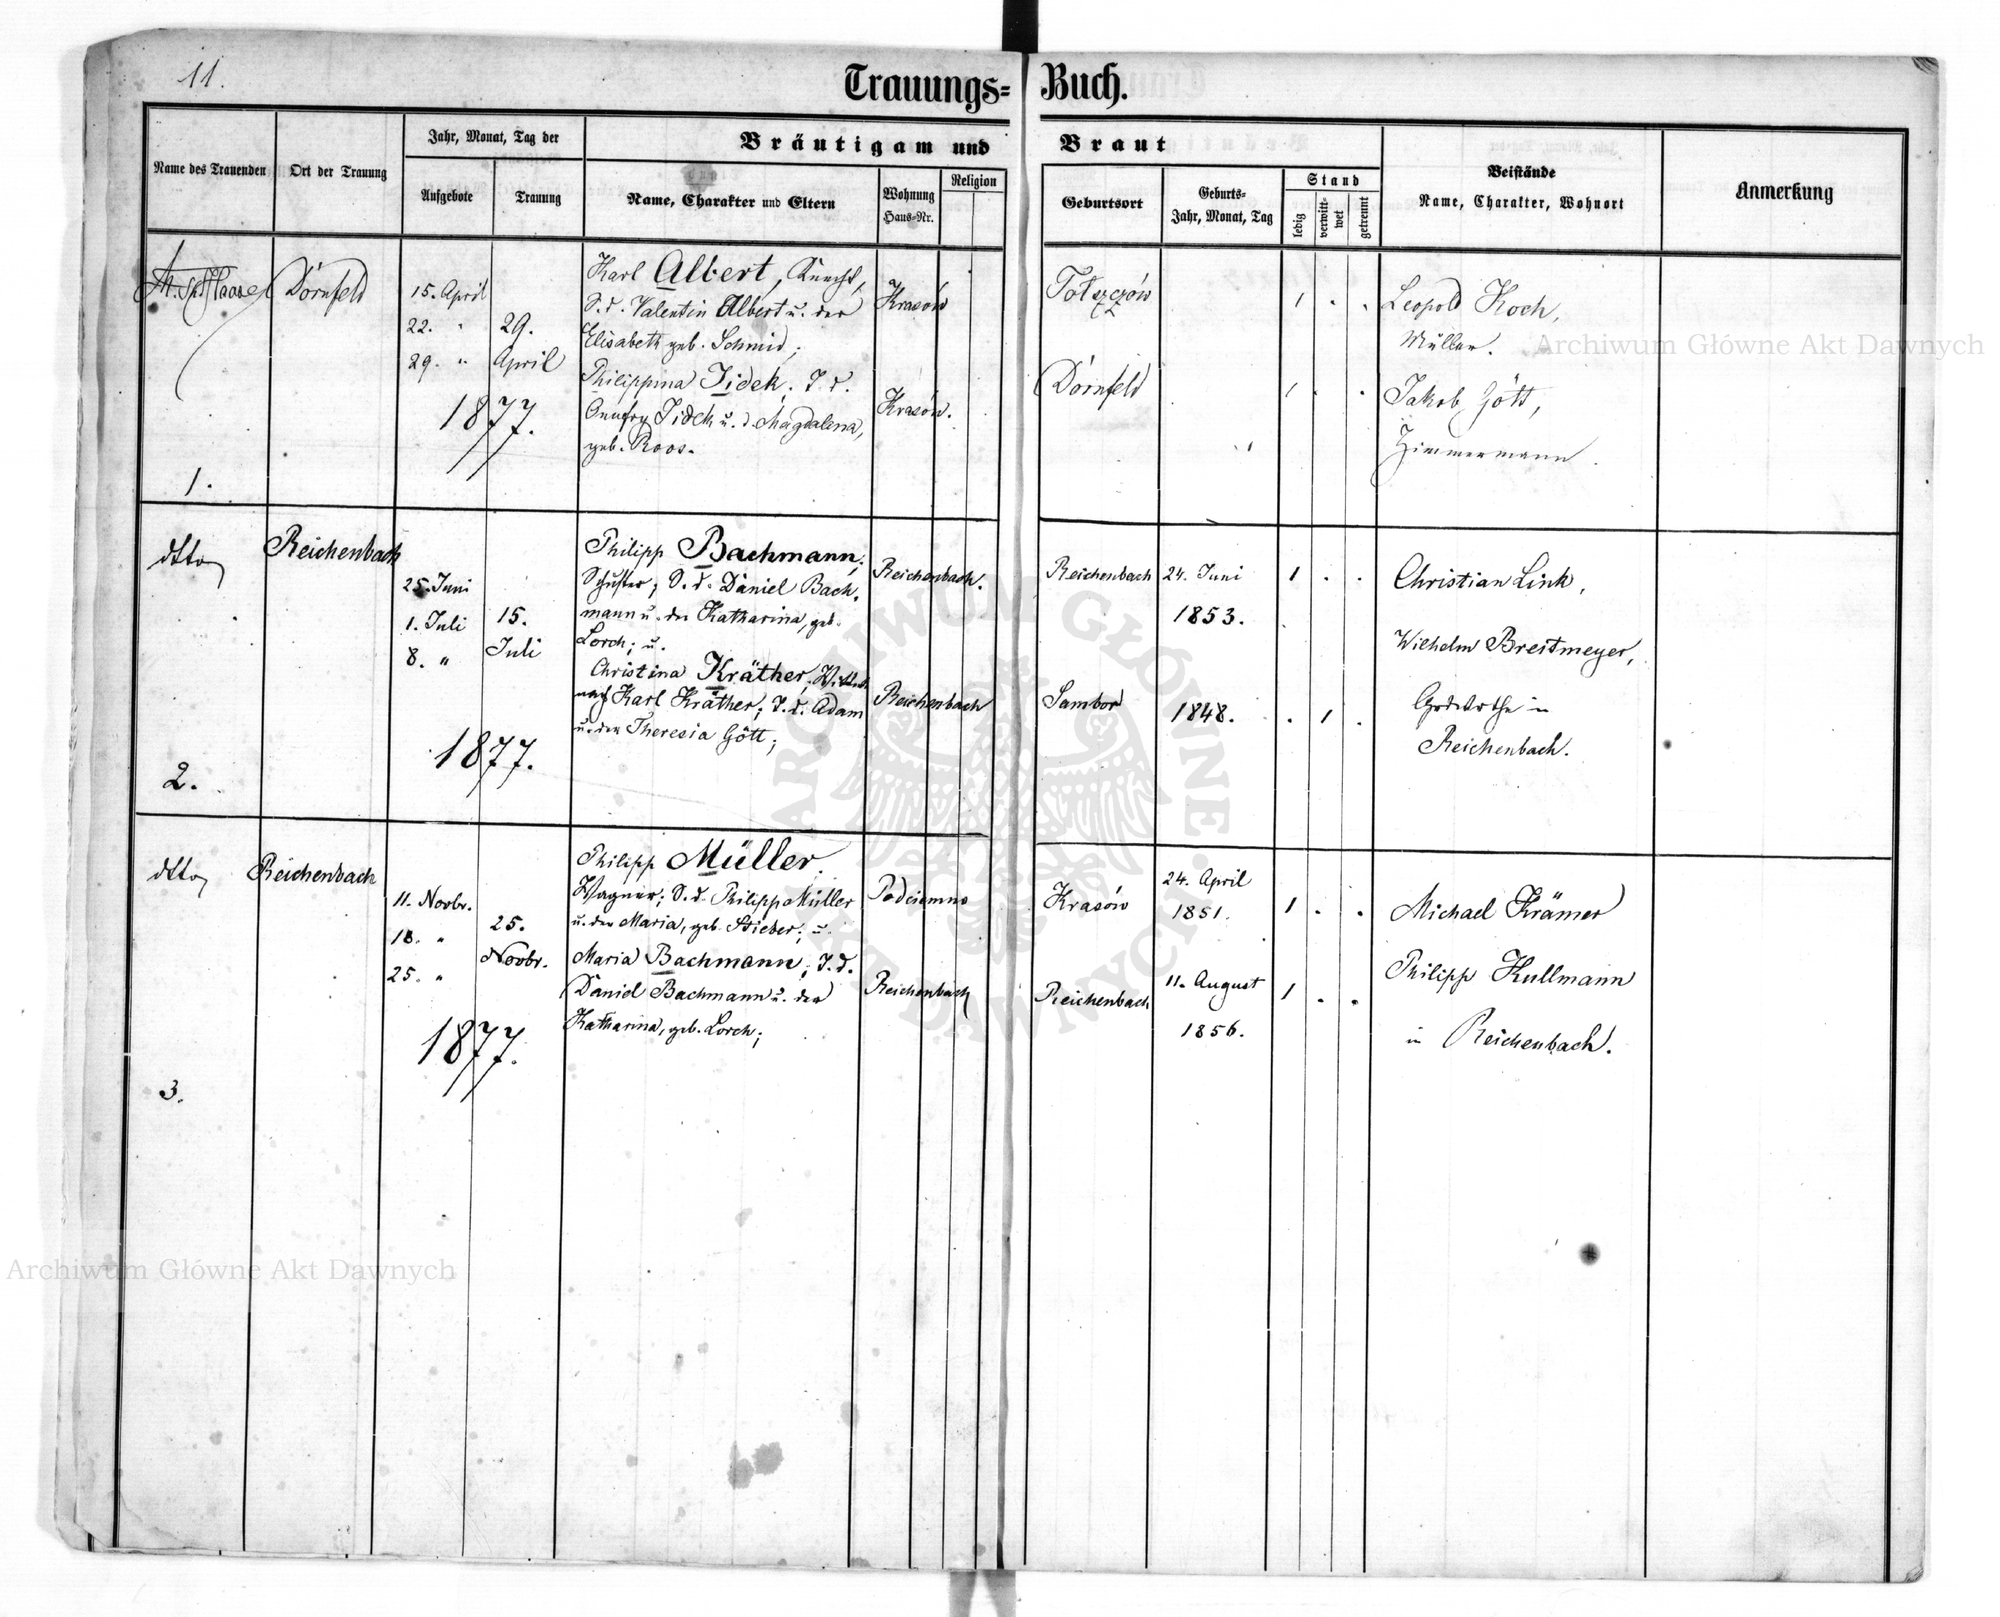 11.
Trauungs= Buch.
Name des Trauenden
Ort der Trauung
Jahr, Monat, Tag der
Aufgebote
Trauung
Bräutigam und Braut
Name, Charakter und Eltern
Wohnung
Haus-Nr.
Religion
Geburtsort
Geburts-
Jahr, Monat, Tag
Stand
ledig
verwitt-
wet
getrennt
Beistände
Name, Charakter, Wohnort
Anmerkung
Dornfeld
15. April
22. "
29. "
29.
April
1877.
Karl Albert, Knecht,
S. d. Valentin Albert u. der
Elisabeth geb. Schmid;
Philippina Jidek; T. d.
Onufry Jidek u. d. Magdalena,
geb. Roos.
Krasów
Krasów.
Tołszczów
Dornfeld
1 . .
1 . .
Leopold Koch,
Müller.
Jakob Gött,
Zimmermann.
1.
dtto
Reichenbach
25. Juni
1. Juli
8. "
15.
Juli
1877.
Philipp Bachmann,
Schuster; S. d. Daniel Bach-
mann u. der Katharina, geb.
Lorch; u.
Christina Kräther,
nach Karl Kräther; T. d. Adam
u. der Theresia Gött;
Reichenbach.
Reichenbach
Reichenbach
24. Juni
1853.
Sambor
1848.
1 . .
. 1 .
Christian Link,
Wilhelm Breitmeyer,
in
Reichenbach.
2.
dtto
Reichenbach
11. Novbr.
18. "
25. "
25.
Novbr.
1877.
Philipp Müller.
Wagner; S. d. Philipp Müller
u. der Maria, geb. Stieber; u.
Maria Bachmann; T. d.
Daniel Bachmann u. der
Katharina, geb. Lorch;
Podciemno
Reichenbach
Krasów
24. April
1851.
Reichenbach
11. August
1856.
1 . .
1 . .
Michael Krämer
Philipp Kullmann
in Reichenbach.
3.
Archiwum Główne Akt Dawnych
Archiwum Główne Akt Dawnych
ARCHIWUM GŁÓWNE AKT DAWNYCH